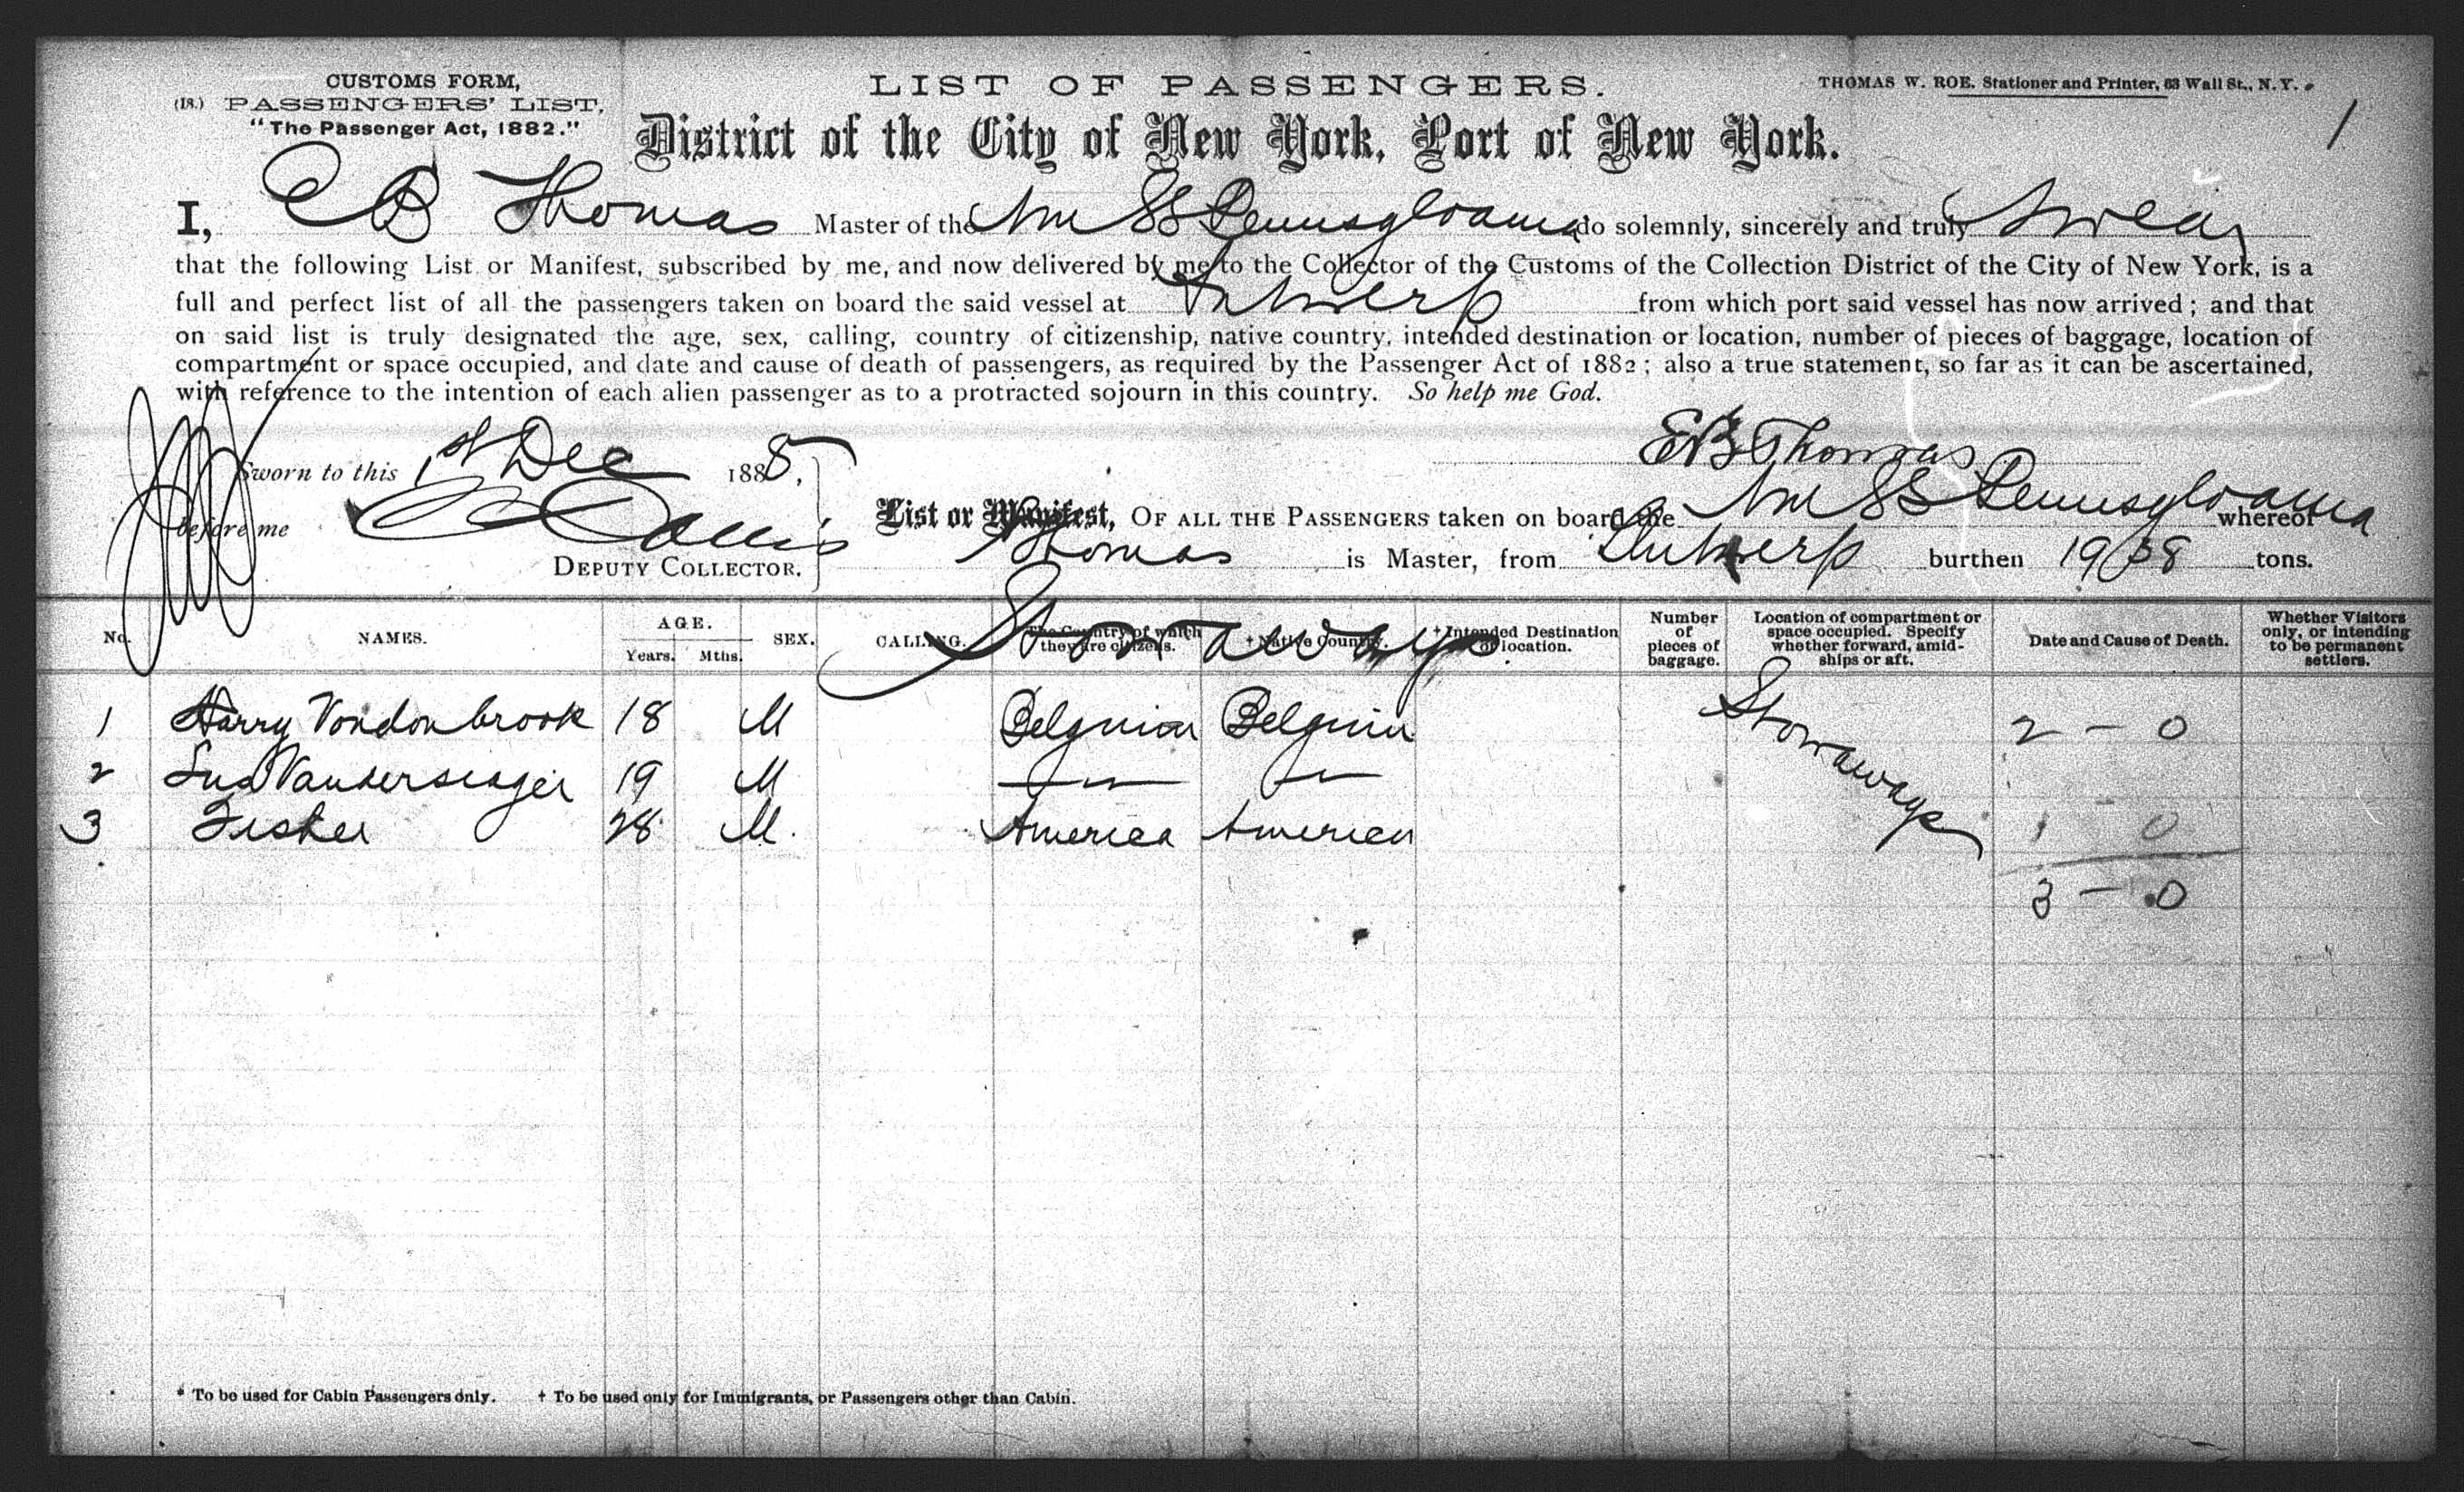 CUSTOMS FORM,
(18.) PASSENGERS' LIST,
"The Passenger Act, 1882."
LIST OF PASSENGERS.
THOMAS W. ROE. Stationer and Printer, 63 Wall St., N. Y.
1
District of the City of New York, Port of New York.
I, EB Thomas Master of the Am SS Pennsylvania do solemnly, sincerely and truly Swear
that the following List or Manifest, subscribed by me, and now delivered by me to the Collector of the Customs of the Collection District of the City of New York, is a
full and perfect list of all the passengers taken on board the said vessel at Antwerp from which port said vessel has now arrived; and that
on said list is truly designated the age, sex, calling, country of citizenship, native country, intended destination or location, number of pieces of baggage, location of
compartment or space occupied, and date and cause of death of passengers, as required by the Passenger Act of 1882; also a true statement, so far as it can be ascertained,
with reference to the intention of each alien passenger as to a protracted sojourn in this country. So help me God.
EB Thomas
Sworn to this 1st Dec 1888,
before me
DEPUTY COLLECTOR.
List or Manifest, OF ALL THE PASSENGERS taken on board the Am SS Pennsylvania whereof
Thomas is Master, from Antwerp burthen 1938 tons.
No. NAMES. AGE. Years. Mths. SEX. CALLING. The Country of which they are citizens. † Native Country. † Intended Destination or location. Number of pieces of baggage. Location of compartment or space occupied. Specify whether forward, amidships or aft. Date and Cause of Death. Whether Visitors only, or intending to be permanent settlers.
Stowaways
1 Harry Vondonbrook 18 M Belgium Belgium Stowaways 2 - 0
2 19 M
3 Fisher 28 M. America America 1 0
3 - 0
* To be used for Cabin Passengers only. † To be used only for Immigrants, or Passengers other than Cabin.